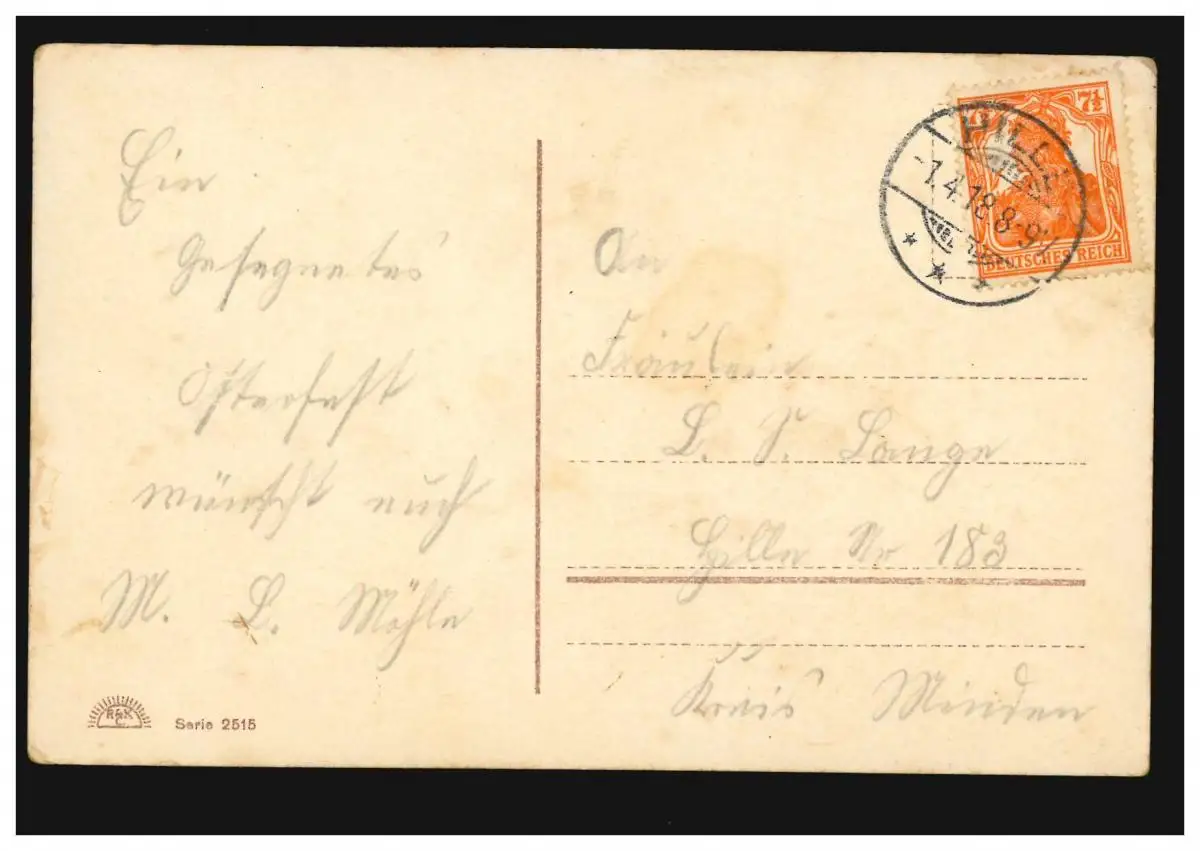 Ein
Gesegnetes
Osterfest
wünscht euch
M. L. Möhle
Serie 2515
7½
DEUTSCHES REICH
HILLE
1.4.18.8-9V
An
Fräulein
L. S. Lange
Hille Nr 183
Kreis Minden